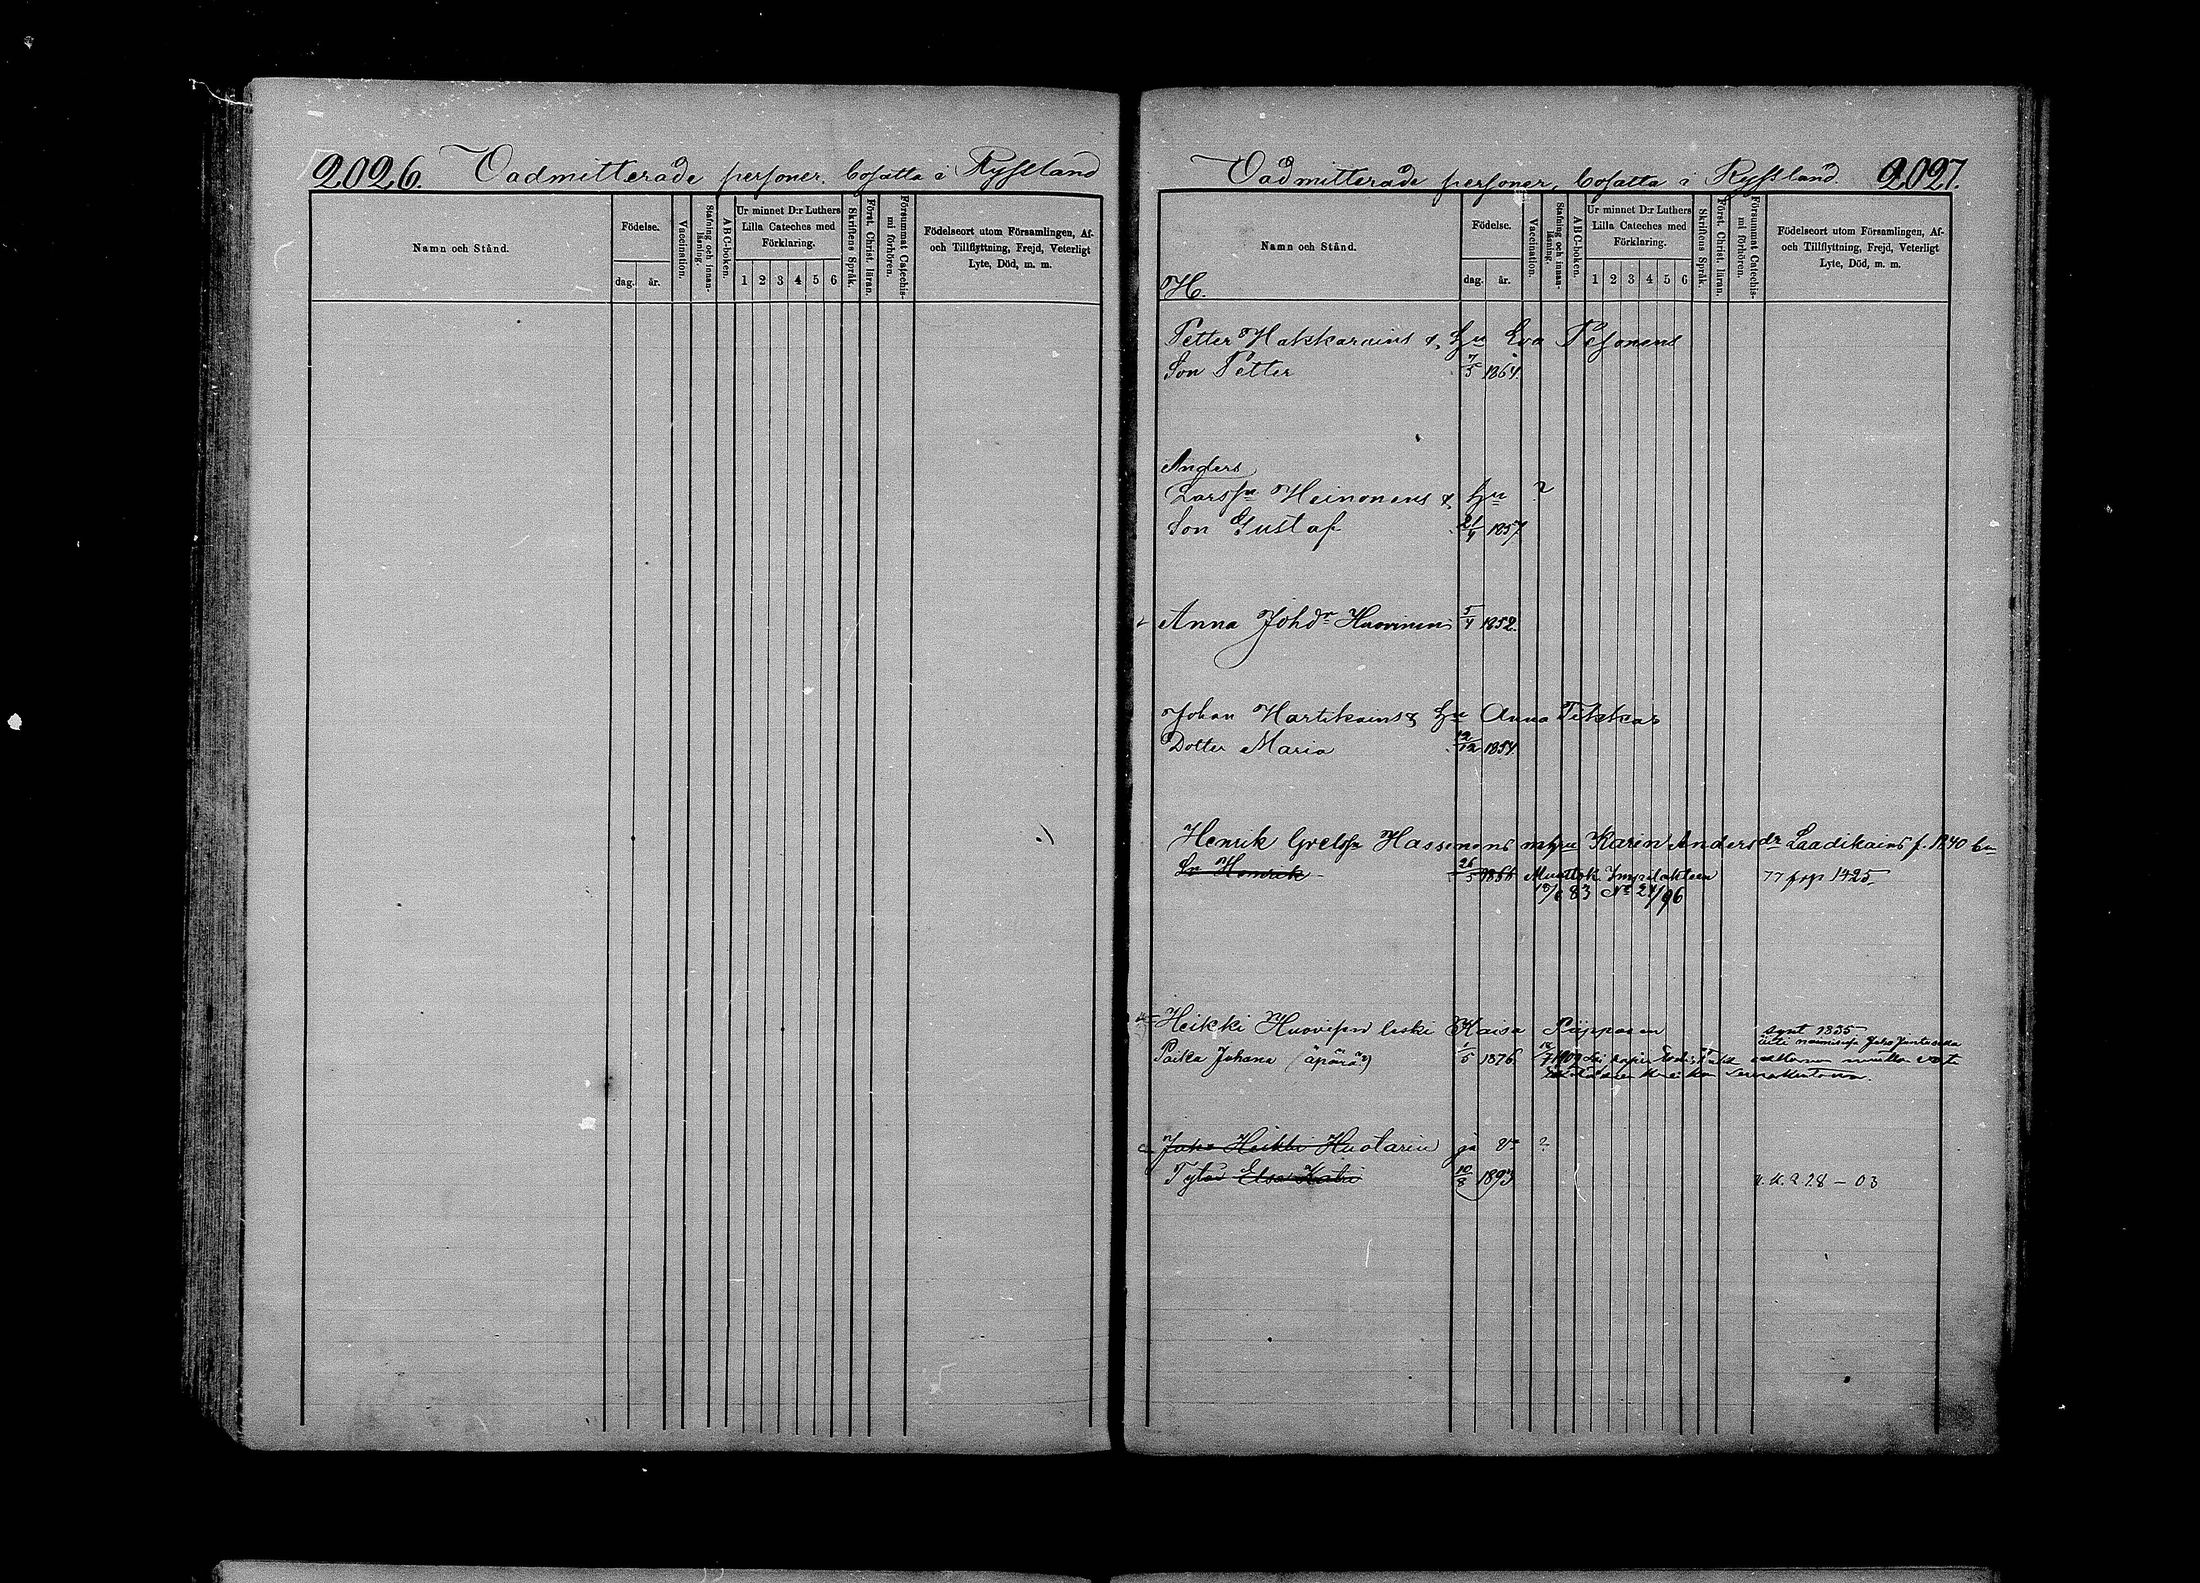 2026. Oadmitterade personer. bosatta i Ryssland
Namn och Stånd.
Födelse.
dag.
år.
Vaccination.
Stafning och innan-läsning.
ABC-boken.
Ur minnet D:r Luthers Lilla Cateches med Förklaring.
1 2 3 4 5 6
Skriftens Språk.
Först. Christ. läran.
Försummat Catechis-mi förhören.
Födelseort utom Församlingen, Af-
och Tillflyttning, Frejd, Veterligt
Lyte, Död, m. m.
Oadmitterade personer, bosatta i Ryssland. 2027.
Namn och Stånd.
H.
Födelse.
dag.
år.
Vaccination.
Stafning och innan-läsning.
ABC-boken.
Ur minnet D:r Luthers Lilla Cateches med Förklaring.
1 2 3 4 5 6
Skriftens Språk.
Först. Christ. läran.
Försummat Catechis-mi förhören.
Födelseort utom Församlingen, Af-
och Tillflyttning, Frejd, Veterligt
Lyte, Död, m. m.
Petter Hakkarains & Hu Eva Pesonens
Son Petter 7/5 1864.
Anders
Larssn Heinonens & hu ?
Son Gustaf 21/4 1857
Anna Johdr Huovinen 5/4 1852.
Johan Hartikains & hu Anna Tikkas
Dotter Maria 12/12 1854
Henrik Grelssn Hassinens m hu Karin Andersdr Laadikains f. 1840
Sn Henrik 26/5 1866 Muuttok. Impilahteen 77 pag 1425
83 No 27/96
Heikki Huovisen leski Kaisa Piipponen synt 1835
Poika Johana (äpärä?) 1/5 1876
Juho Heikki Huotarin ja V ?
Tytär Elsa Katri 10/8 1893 228 – 03